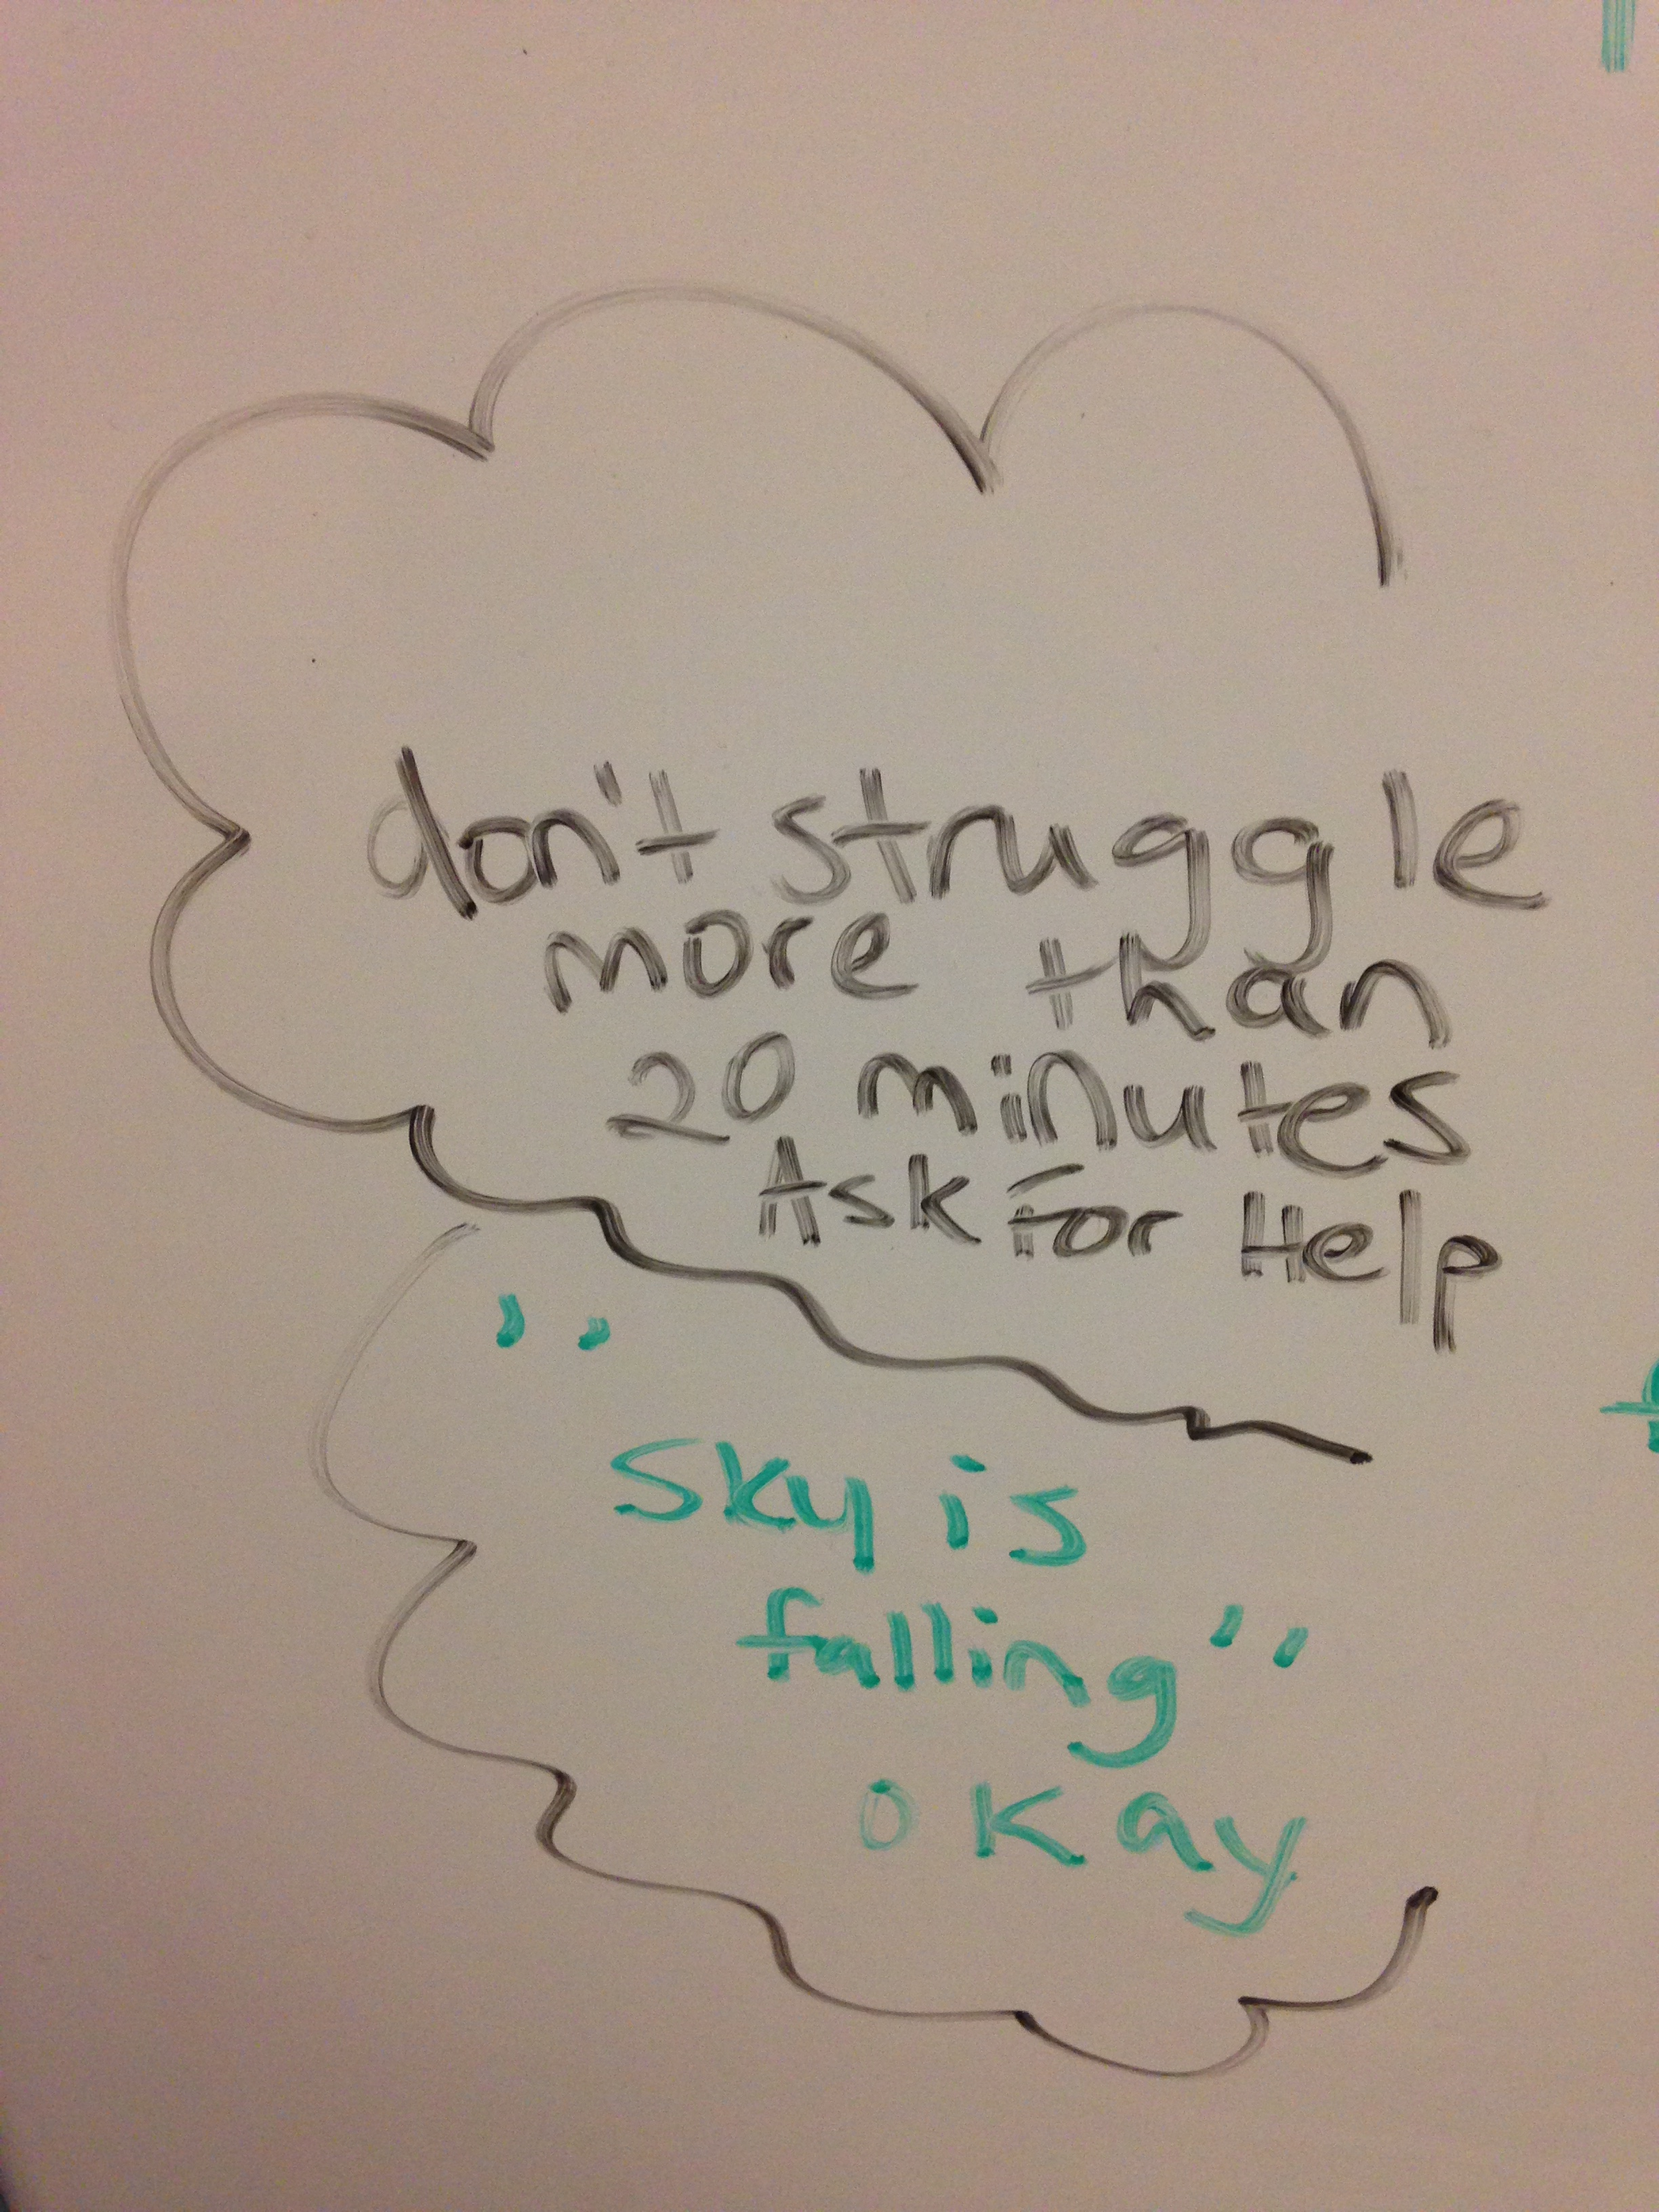 don't struggle
more than
20 minutes
Ask For Help
"Sky is
falling"
okay